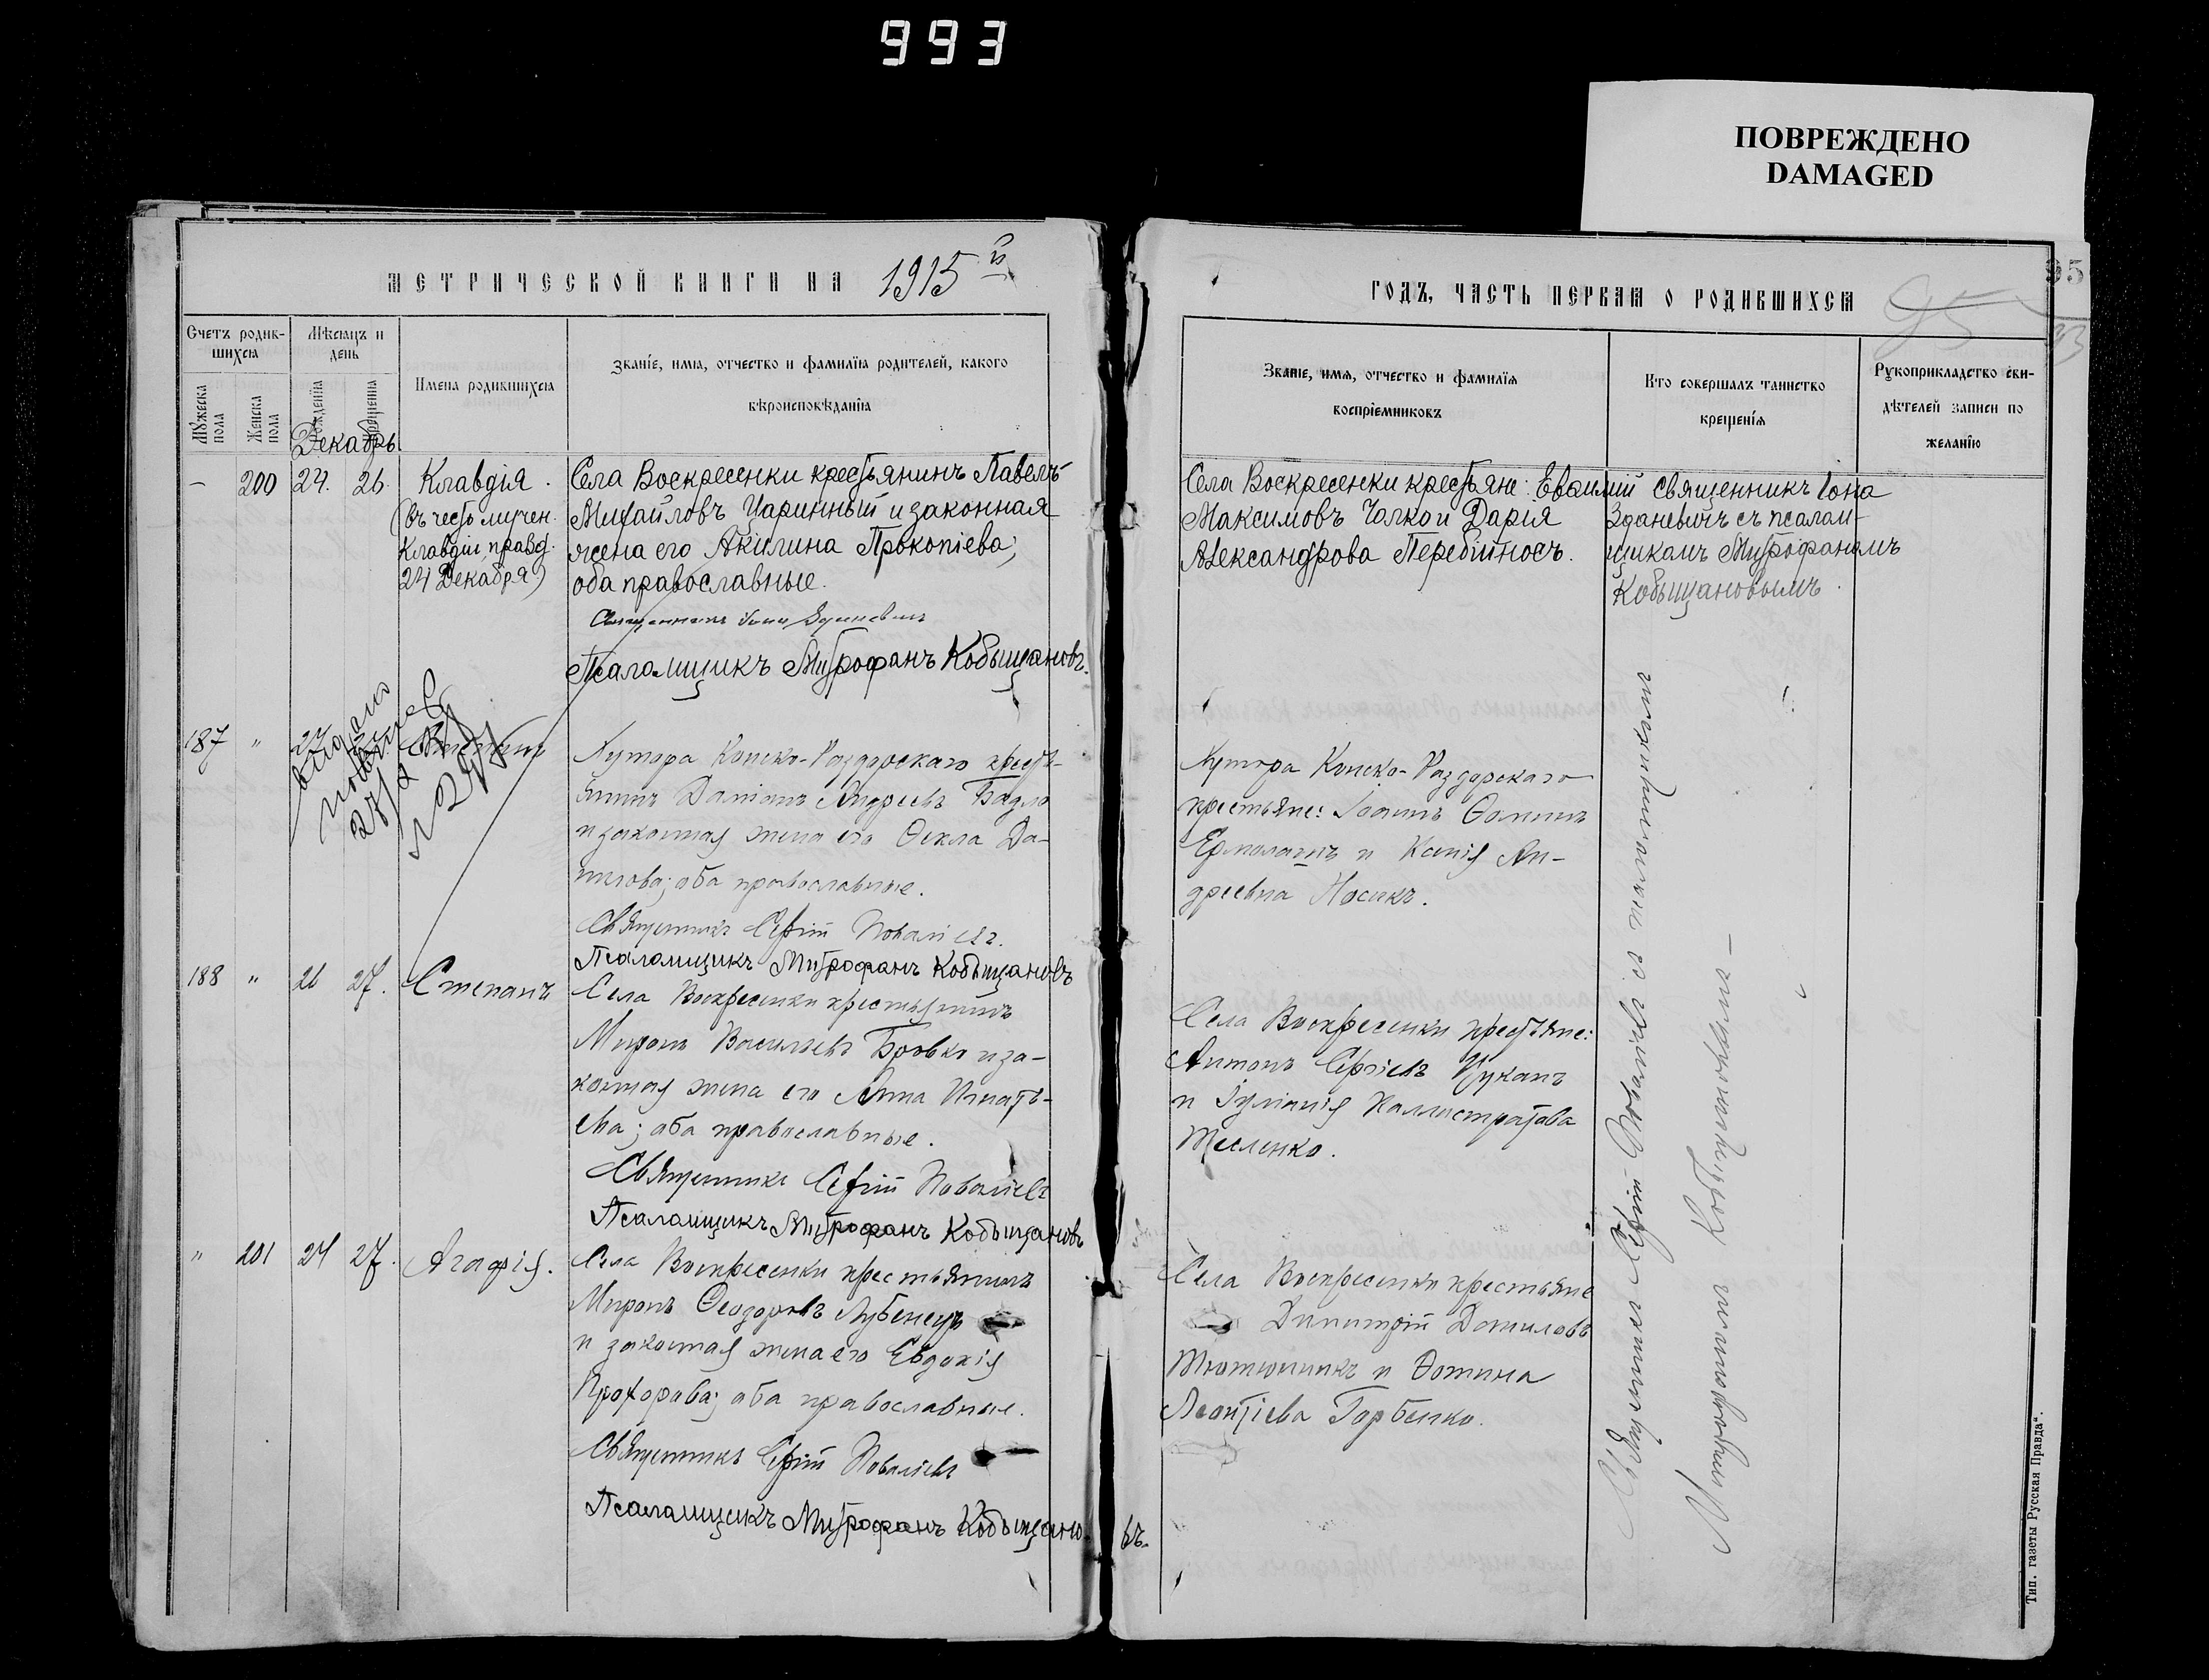 993
ПОВРЕЖДЕНО
DAMAGED
МЕТРИЧЕСКОЙ КНИГИ НА 1915 й
Счетъ родив-
шихся
Мѣсяцъ и
день
Имена родившихся
Званіе, имя, отчество и фамилія родителей, какого
вѣроисповѣданія
Мужеска
пола
Женска
пола
рожденія
крещенія
Декабрь
– 200 24. 26.
Клавдія.
(въ честь мучен.
Клавдіи, празд.
24 Декабря)
Села Воскресенки крестьянинъ Павелъ
Михайловъ Царинный и законная
жена его Акилина Прокопіева;
оба православные.
Священникъ Іона Зданевичъ
Псаломщикъ Митрофанъ Кобыщановъ.
187 "
Хутора Конско-Раздорскаго кресть-
янинъ Даміанъ Андреевъ Бадло
и законная жена его Ѳекла Да-
нилова; оба православные.
Священникъ Сергій
Псаломщикъ Митрофанъ Кобыщановъ
188 " 27. Степанъ
Села Воскресенки крестьянинъ
Миронъ Васильевъ Бровко и за-
конная жена его Анна Игнать-
ева; оба православные.
Священникъ Сергій
Псаломщикъ Митрофанъ Кобыщановъ
" 201 24 27. Агафія.
Села Воскресенки крестьянинъ
Миронъ Ѳеодоровъ Лубенецъ
и законная жена его Евдокія
Прохорова; оба православные.
Священникъ Сергій
Псаломщикъ Митрофанъ Кобыщано-
въ.
ГОДЪ, ЧАСТЬ ПЕРВАЯ О РОДИВШИХСЯ
95
Званіе, имя, отчество и фамилія
воспріемниковъ
Кто совершалъ таинство
крещенія
Рукоприкладство сви-
дѣтелей записи по
желанію
Села Воскресенки крестьяне: Евѳимій
Максимовъ Чолко и Дарія
Александрова Перебійносъ.
Священникъ Іона
Зданевичъ съ псалом-
щикомъ Митрофаномъ
Кобыщановымъ.
Хутора Конско-Раздорскаго
крестьяне: Іоаннъ Ѳоминъ
и Ксенія Ан-
дреевна Носикъ.
Села Воскресенки крестьяне:
Антонъ Сергіевъ Цуканъ
и Іуліанія Каллистратова
Тесленко.
Села Воскресенки крестьяне
Димитрій Даниловъ
Тютюникъ и Фотина
Леонтіева Горбенко.
Священникъ Сергій съ псаломщикомъ
Митрофаномъ Кобыщановымъ –
Тип. газеты Русская Правда“.